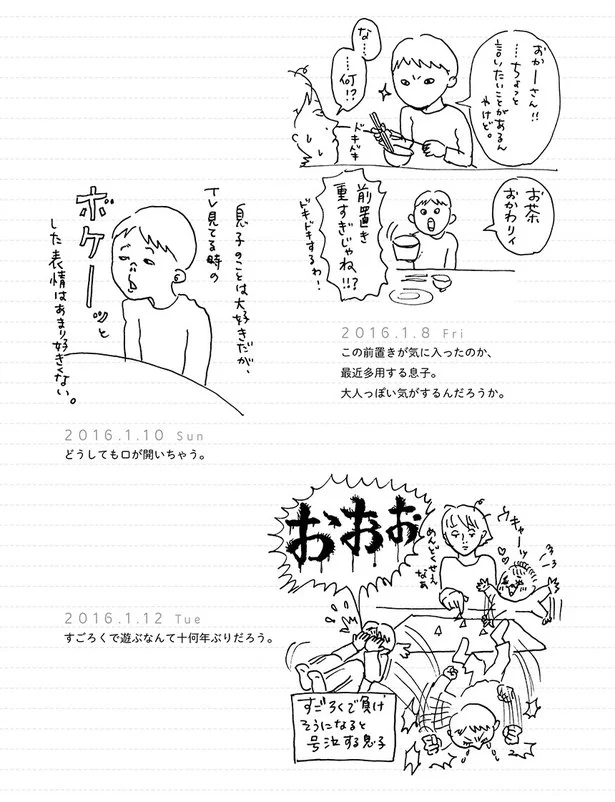 おかーさん!!
……ちょっと
言いたいことがあるん
やけど。
な……
……何!?
ドキドキ
お茶
おかわりィ
前置き
重すぎじゃね!!?
ドキドキするわ!
2016.1.8 Fri
この前置きが気に入ったのか、
最近多用する息子。
大人っぽい気がするんだろうか。
息子のことは大好きだが、
TV見てる時の
ボケーッと
した表情はあまり好きくない。
2016.1.10 Sun
どうしても口が開いちゃう。
ウキャーッ
めんどくせえ
なあ
おおお
すごろくで負け
そうになると
号泣する息子
2016.1.12 Tue
すごろくで遊ぶなんて十何年ぶりだろう。